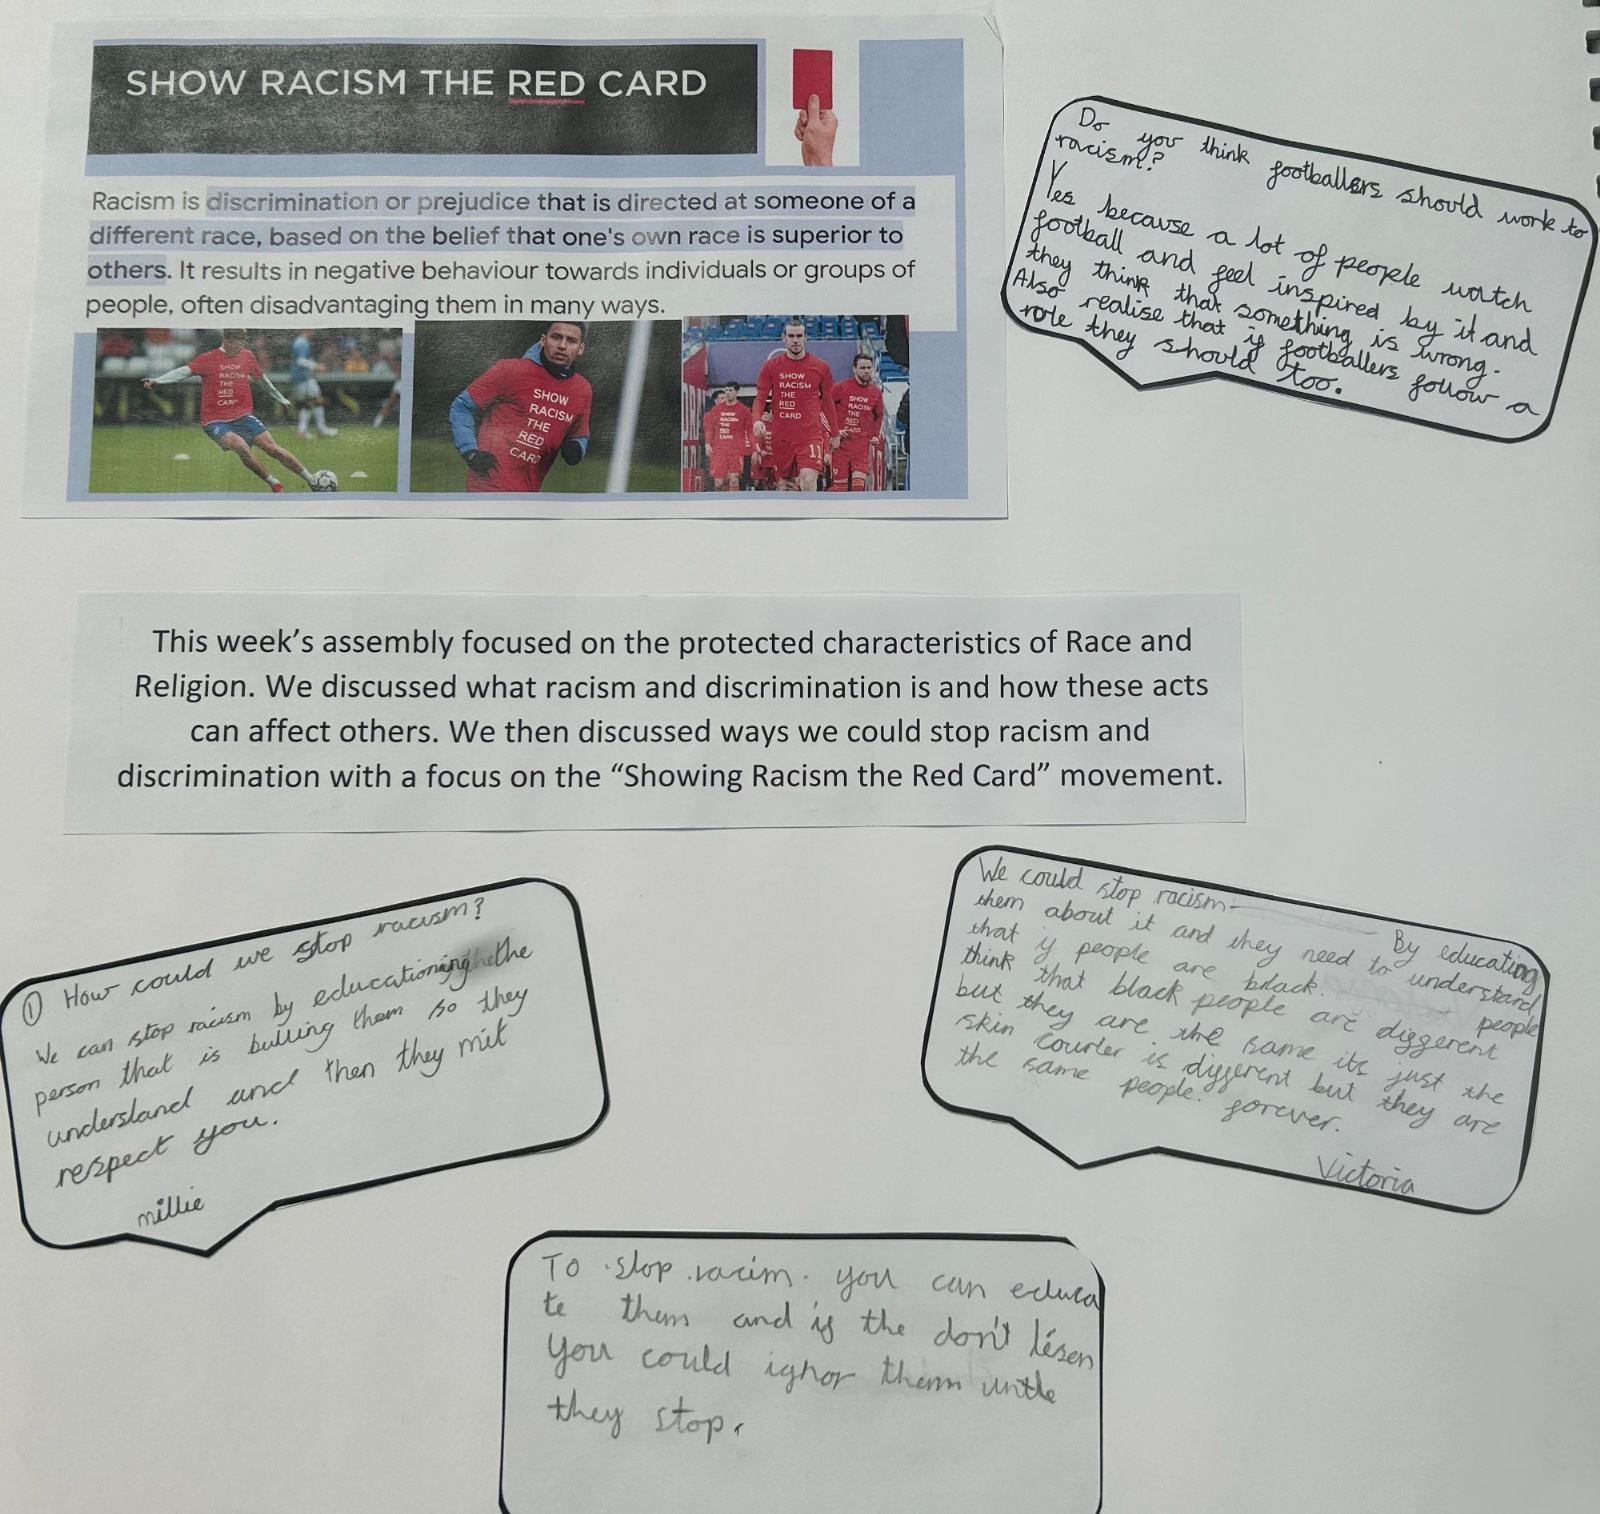 SHOW RACISM THE RED CARD
Racism is discrimination or prejudice that is directed at someone of a
different race, based on the belief that one's own race is superior to
others. It results in negative behaviour towards individuals or groups of
people, often disadvantaging them in many ways.
SHOW
RACISM
THE
RED
CARD
SHOW
RACISM
THE
RED
CARD
SHOW
RACISM
THE
RED
CARD
SHOW
RACISM
THE
RED
CARD
11
SHOW
RACISM
THE
RED
CARD
Do you think footballers should work to
racism?
Yes because a lot of people watch
football and feel inspired by it and
they think that something is wrong.
Also realise that if footballers follow a
role they should too.
This week's assembly focused on the protected characteristics of Race and
Religion. We discussed what racism and discrimination is and how these acts
can affect others. We then discussed ways we could stop racism and
discrimination with a focus on the “Showing Racism the Red Card” movement.
① How could we stop racism?
We can stop racism by educationing the
person that is bulling them so they
understand and then they mit
respect you.
millie
We could stop racism- By educating
them about it and they need to understand
that if people are black. people
think that black people are different
but they are the same its just the
skin courler is different but they are
the same people. forever.
Victoria
To stop racim. you can educa
te them and if the don't lisen
you could ignor them untle
they stop.